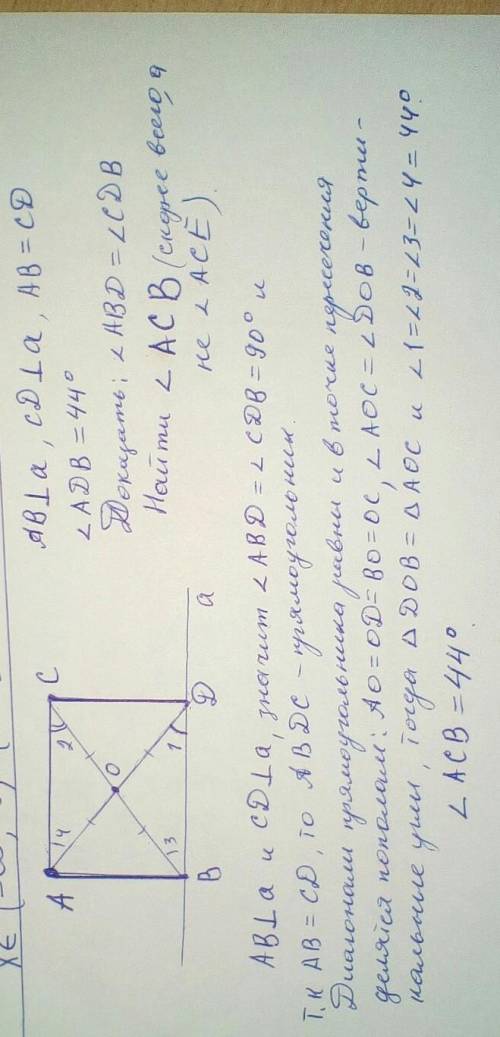 AB⊥a, CD⊥a, AB=CD
∠ADB=44°
Доказать: ∠ABD=∠CDB
Найти ∠ACB (скорее всего, а
не ∠ACE).
A
C
14
2
O
13
1
B
D
a
AB⊥a и CD⊥a, значит ∠ABD=∠CDB=90° и
т.к AB=CD, то ABDC – прямоугольник.
Диагонали прямоугольника равны и в точке пересечения
делятся пополам: AO=OD=BO=OC, ∠AOC=∠DOB – верти-
кальные углы, тогда △DOB=△AOC и ∠1=∠2=∠3=∠4=44°.
∠ACB=44°.